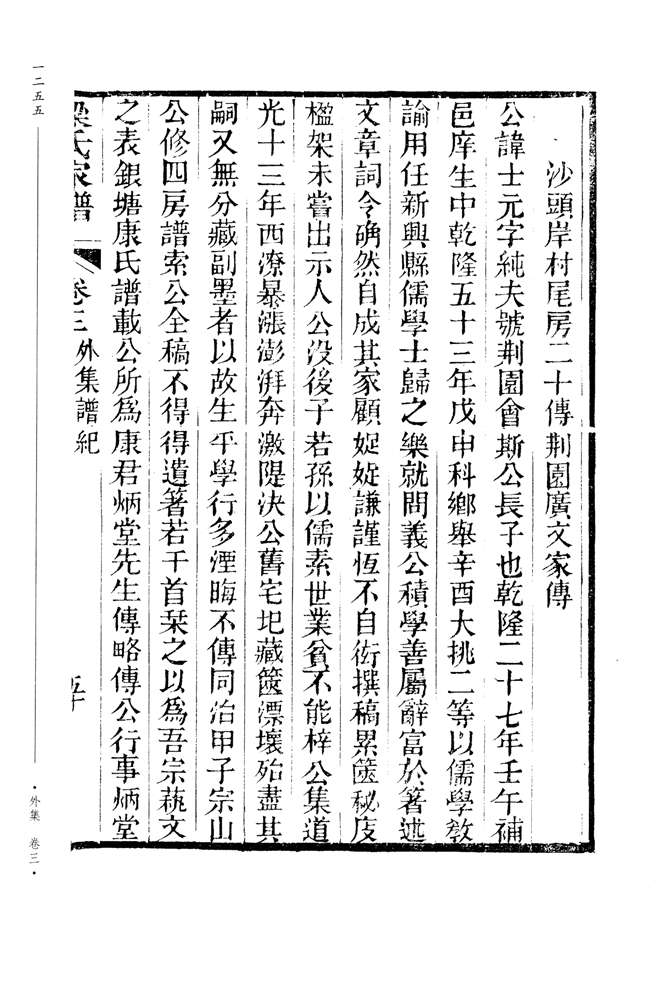 沙頭岸村尾房二十傳荆園廣文家傳
公諱士元字純夫號荆園會斯公長子也乾隆二十七年壬午補
邑庠生中乾隆五十三年戊申科鄉舉辛酉大挑二等以儒學教
諭用任新興縣儒學士歸之樂就問義公積學善屬辭富於箸述
文章詞令确然自成其家顧婗婗謙謹恆不自衒撰稿累篋秘庋
楹架未嘗出示人公没後子若孫以儒素世業貧不能梓公集道
光十三年西潦暴漲澎湃奔激隄決公舊宅圯藏篋漂壞殆盡其
嗣又無分藏副墨者以故生平學行多湮晦不傳同治甲子宗山
公修四房譜索公全稿不得得遺箸若干首栞之以爲吾宗蓺文
之表銀塘康氏譜載公所爲康君炳堂先生傳略傳公行事炳堂
梁氏家譜 卷三 外集譜紀 五十
一二五五
·外集 卷三·